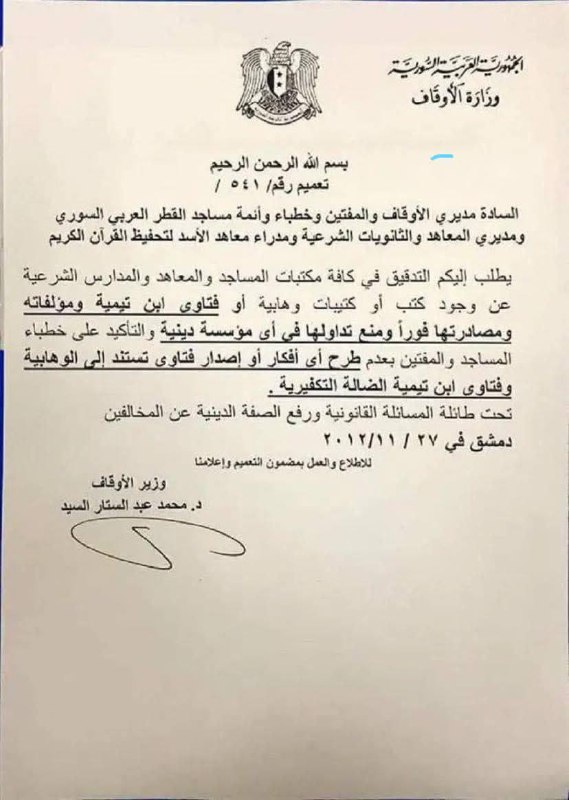 الجمهورية العربية السورية
وزارة الأوقاف
بسم الله الرحمن الرحيم
تعميم رقم/ ٥٤١ /
السادة مديري الأوقاف والمفتين وخطباء وأئمة مساجد القطر العربي السوري
ومديري المعاهد والثانويات الشرعية ومدراء معاهد الأسد لتحفيظ القرآن الكريم
يطلب إليكم التدقيق في كافة مكتبات المساجد والمعاهد والمدارس الشرعية
عن وجود كتب أو كتيبات وهابية أو فتاوى ابن تيمية ومؤلفاته
ومصادرتها فوراً ومنع تداولها في أي مؤسسة دينية والتأكيد على خطباء
المساجد والمفتين بعدم طرح أي أفكار أو إصدار فتاوى تستند إلى الوهابية
وفتاوى ابن تيمية الضالة التكفيرية .
تحت طائلة المسائلة القانونية ورفع الصفة الدينية عن المخالفين
دمشق في ٢٧ / ٢٠١٢/١١
للاطلاع والعمل بمضمون التعميم وإعلامنا
وزير الأوقاف
د. محمد عبد الستار السيد